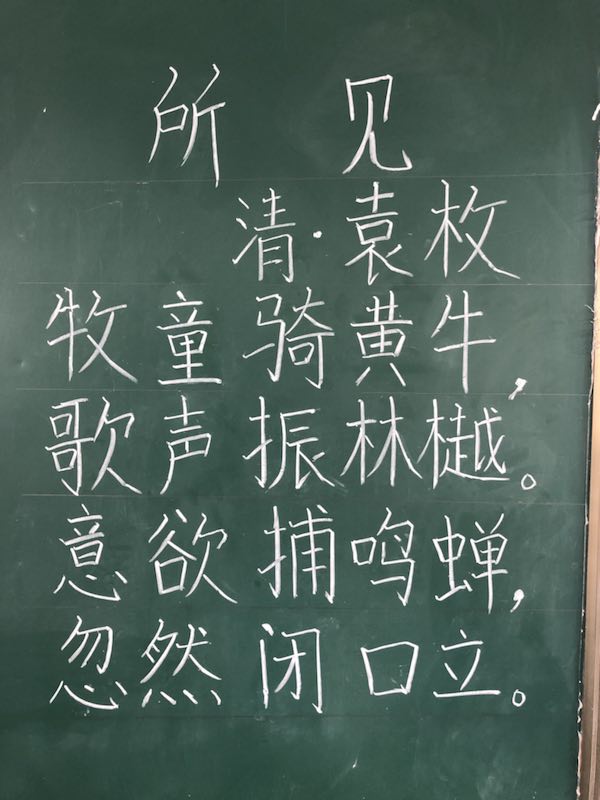 所见
清·袁枚
牧童骑黄牛,
歌声振林樾。
意欲捕鸣蝉,
忽然闭口立。